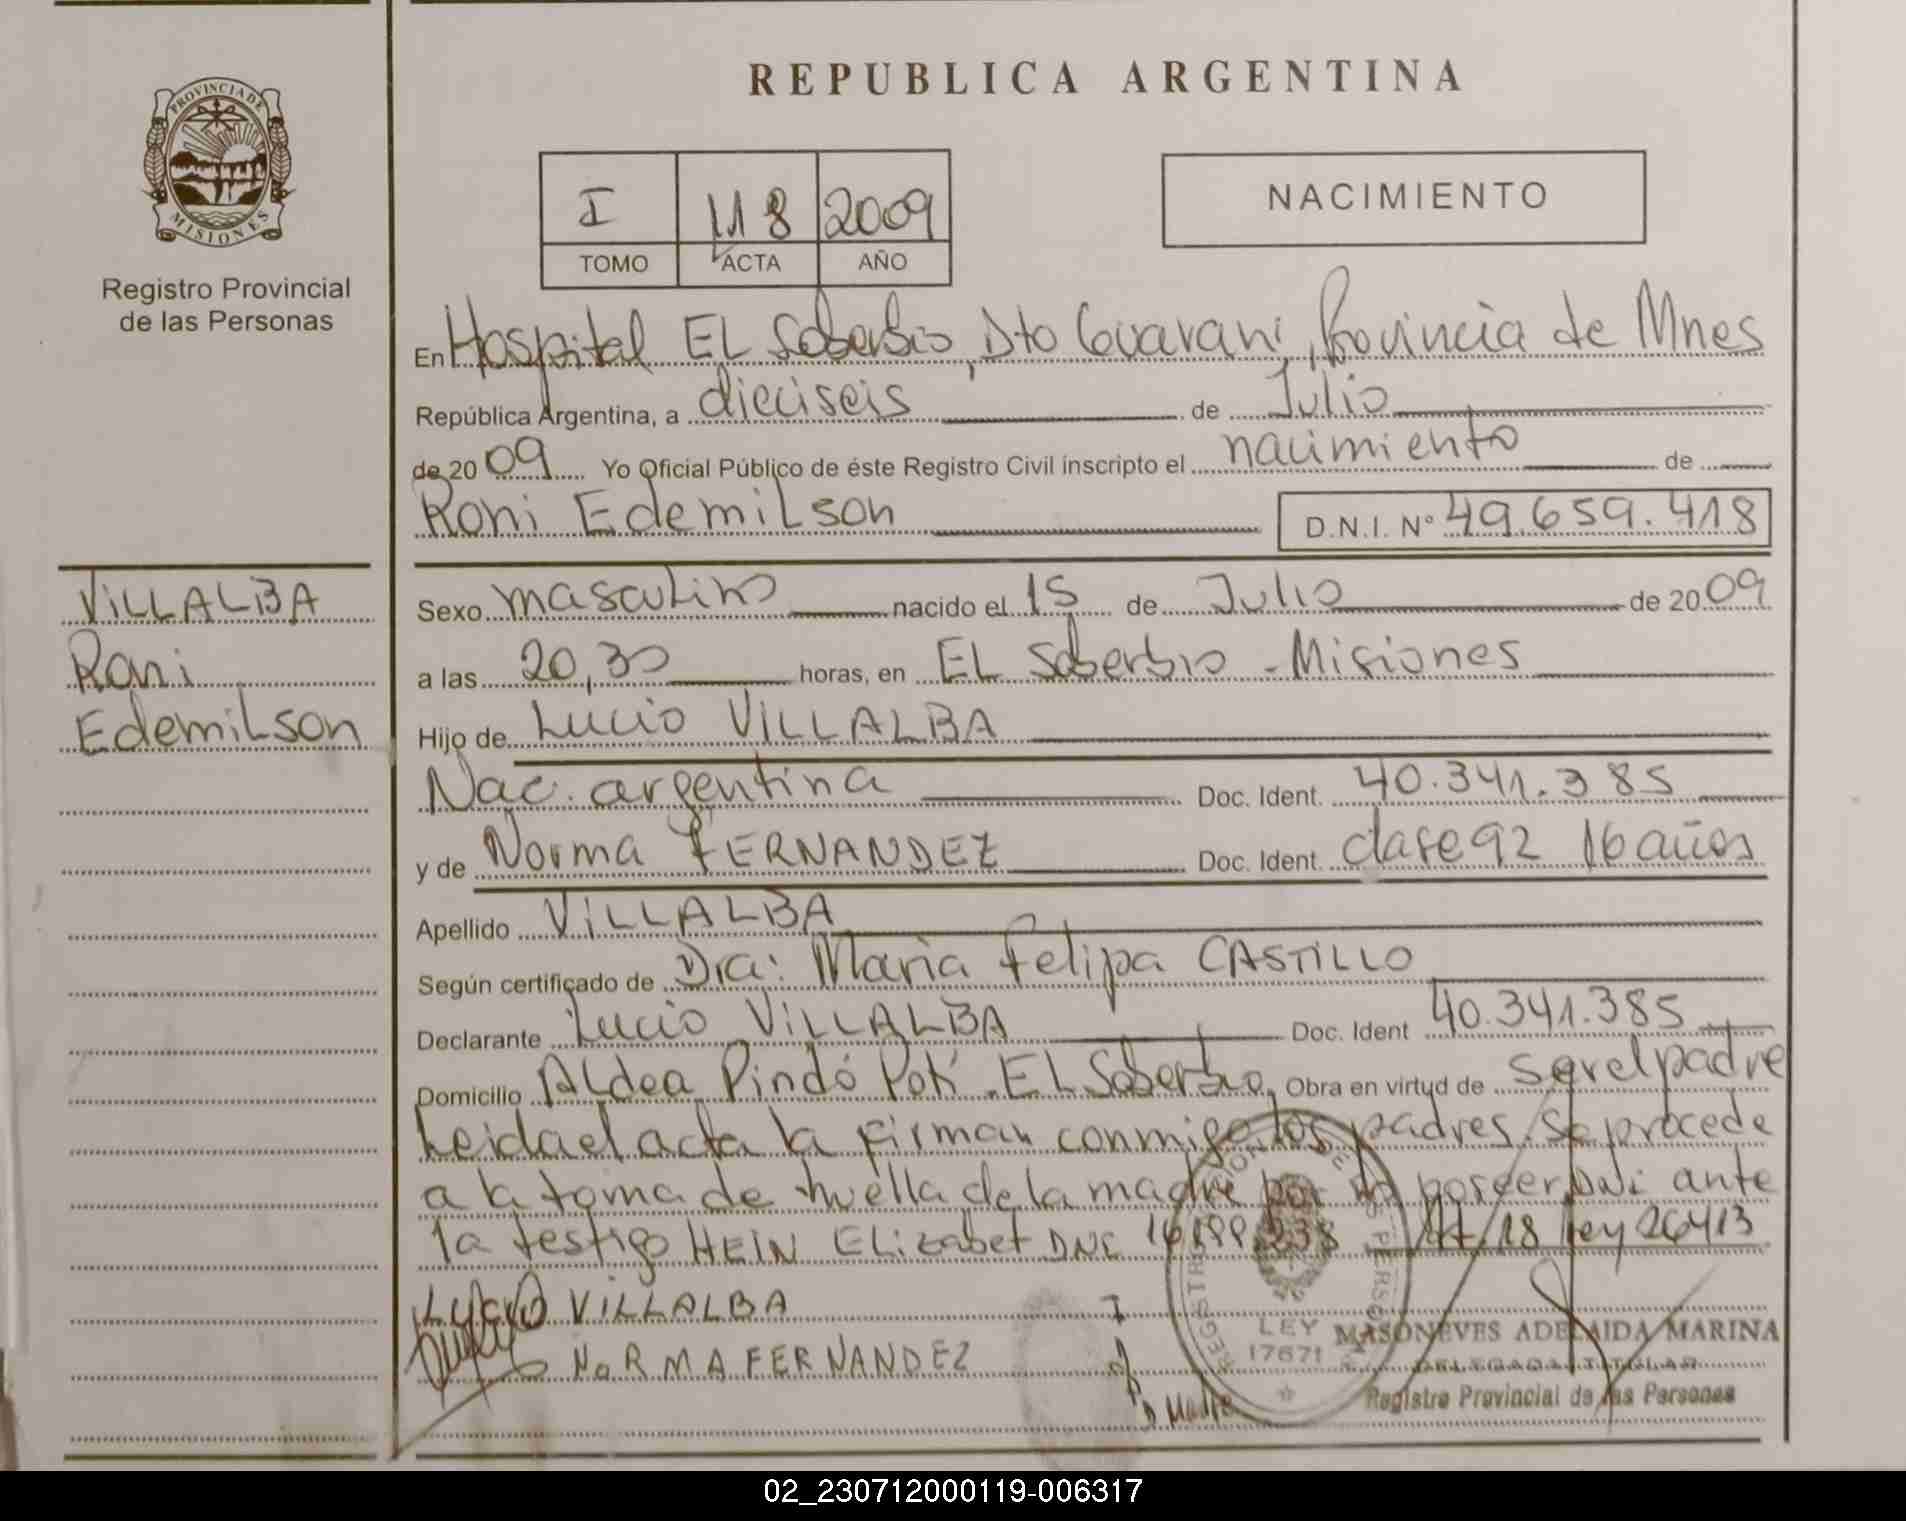 REPUBLICA ARGENTINA
PROVINCIA DE
MISIONES
Registro Provincial
de las Personas
I 118 2009
TOMO ACTA AÑO
NACIMIENTO
En Hospital EL Soberbio, Dto Guarani, Provincia de Mnes
República Argentina, a dieciseis de Julio
de 2009 Yo Oficial Público de éste Registro Civil inscripto el nacimiento de
Roni Edemilson D.N.I. N° 49.659.418
VILLALBA
Roni
Edemilson
Sexo masculino nacido el 15 de Julio de 2009
a las 20,30 horas, en EL Soberbio - Misiones
Hijo de Lucio VILLALBA
Nac. argentina Doc. Ident. 40.341.385
y de Norma FERNANDEZ Doc. Ident. clase 92 16 años
Apellido VILLALBA
Según certificado de Dra: Maria Felipa CASTILLO
Declarante Lucio VILLALBA Doc. Ident 40.341.385
Domicilio ALdea Pindó Poti. EL Soberbio, Obra en virtud de ser el padre
Leida el acta la firman conmigo los padres. Se procede
a la toma de huella de la madre por no poseer DNi ante
la testigo HEIN ELizabet DNI Art/18 Ley 26413
VILLALBA
NORMA FERNANDEZ
LEY
17671
MASONEVES ADELAIDA MARINA
DELEGADA TITULAR
Registro Provincial de las Personas
02_230712000119-006317